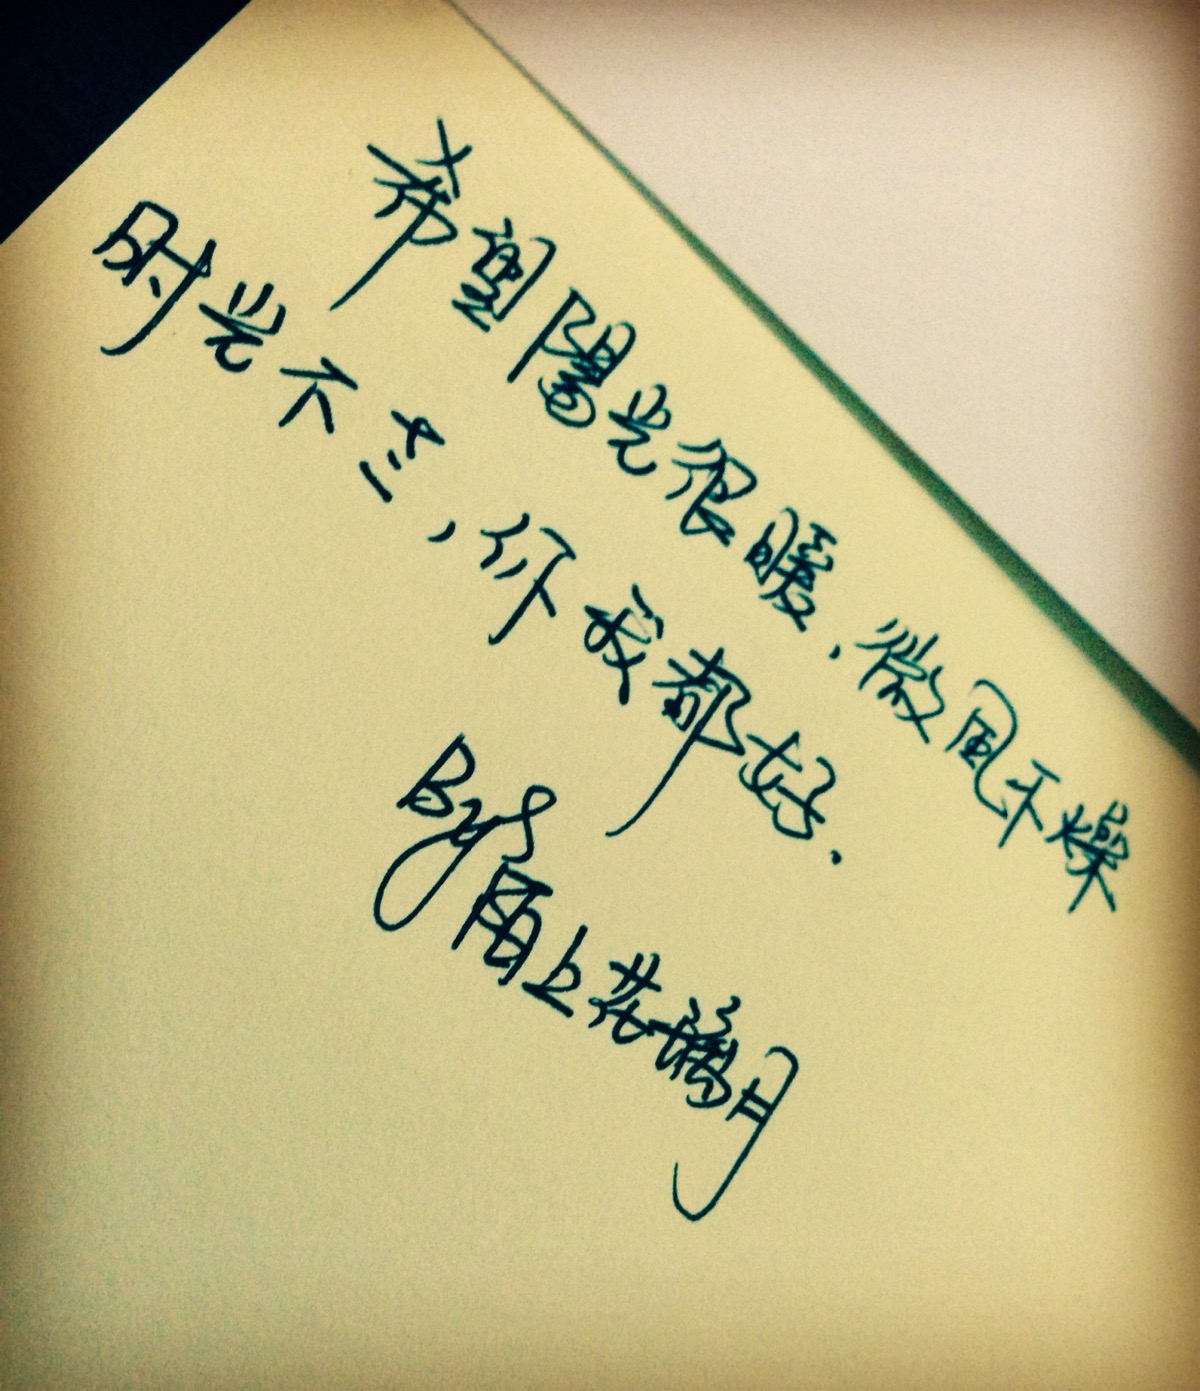 希望陽光很暖.微風不燥
时光不老,你我都好.
By:陌上花漪月